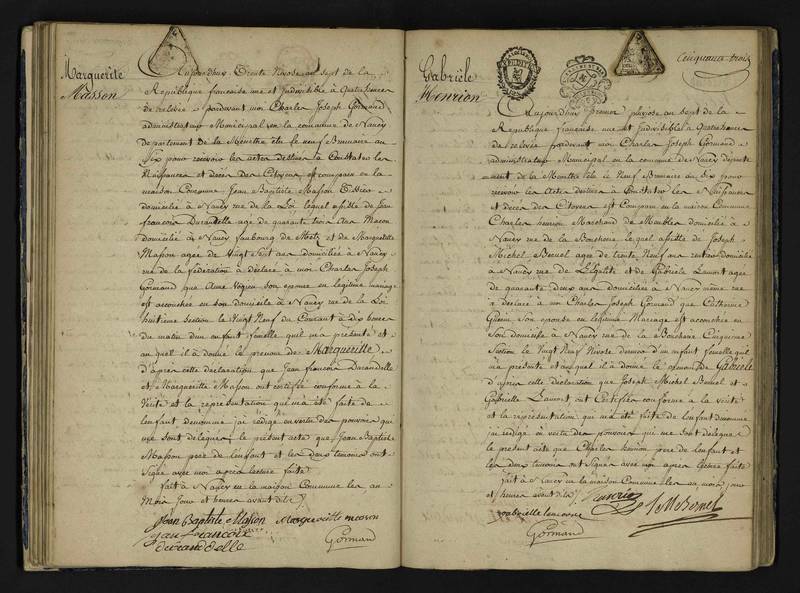 Marguerite
Masson
Aujourdhuy Trente Nivose an sept de la
Republique francaise une et Indivisible à Quatre heures
de relevée pardevant moi Charles Joseph Gormand
administrateur Municipal en la commune de Nancy
departement de la Meurthe élu le neuf Brumaire an
Six pour recevoir les actes destinés à Constater les
Naissances et decès des Citoyens est comparu en la
maison Commune Jean Baptiste Masson
domicilié à Nancy rue de la Loi lequel assisté de Jean
francois Durandelle age de quarante trois ans Macon
domicilié à Nancy faubourg de Metz et de Margueritte
Masson agée de Vingt Sept ans domiciliée à Nancy
rue de la féderation à déclaré à moi Charles Joseph
Gormand que Anne son epouse en legitime mariage
est accouchée en son domicile à Nancy rue de la Loi
huitieme Section le Vingt Neuf du Courant à dix heures
du matin d'un enfant femelle quil m'a presenté et
au quel il à donné le prenom de Margueritte
D'apres cette declaration que Jean francois Durandelle
et Margueritte Masson ont certifié conforme à la
Verité et la représentation qui m'a été faite de
lenfant denommé jai rédigé en vertu des pouvoirs qui
me sont délégués le présent acte que Jean Baptiste
Masson pere de l'enfant et les deux temoins ont
Signé avec moi apres lecture faite
fait à Nancy en la maison Commune les an
Mois Jour et heures avant dits
Jean Baptiste Masson Margueritte masson
jean francois
durandelle
Gormand
Cinquante trois
Gabrièle
Henrion
Aujourdhuy premier pluviose an sept de la
Republique francaise une et Indivisible à Quatre heures
de relevée pardevant moi Charles Joseph Gormand
administrateur Municipal en la comune de Nancy departe
ment de la Meurthe élu le Neuf Brumaire an Six pour
recevoir les Actes destinés à Constater les Naissances
et decès des Citoyens est Comparu en la maison Commune
Charles henrion Marchand de Meubles domicilié à
Nancy rue de la Boucherie lequel assisté de Joseph
Michel age de trente Neuf ans domicilié
à Nancy rue de L'Egalité et de Gabriele agée
de quarante deux ans domiciliée à Nancy même rue
à déclaré à moi Charles Joseph Gormand que Catherine
son epouse en legitime Mariage est accouchée en
Son domicile à Nancy rue de la Boucherie Cinquieme
Section le Vingt Neuf Nivose dernier d'un enfant femelle quil
ma présenté et au quel il à donné le prenom de Gabriele
d'apres cette declaration que Joseph Michel et
Gabrielle ont Certifié conforme à la verité
et la représentation qui ma été faite de lenfant denommé
jai rédigé en vertu des pouvoirs qui me sont délégués
le présent acte que Charles henrion pere de lenfant et
les deux temoins ont Signé avec moi apres lecture faite
fait à Nancy en la maison Commune les an mois jour
et heures avant dits henrion
Gormand